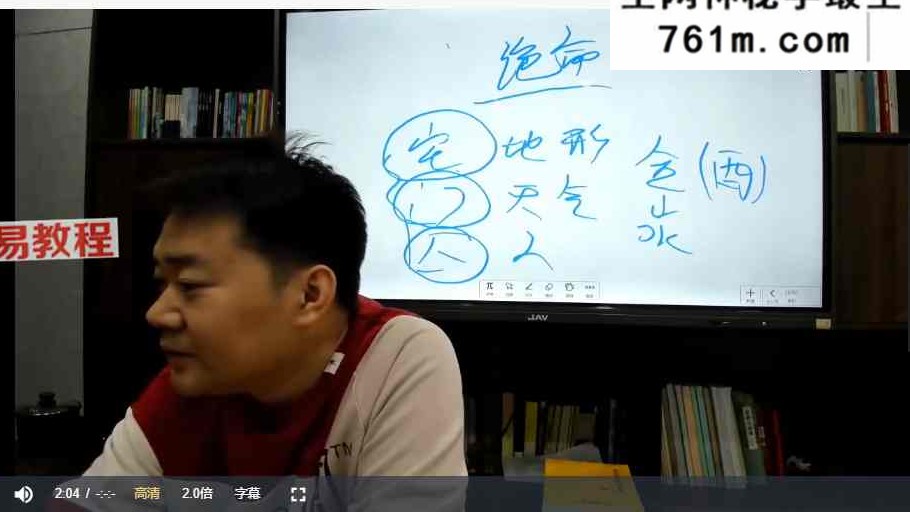 761m.com
绝命
宅 地形 金(酉)
门 天气 山
人 人 水
易教程
JAV
2:04 / -:-:-
高清
2.0倍
字幕